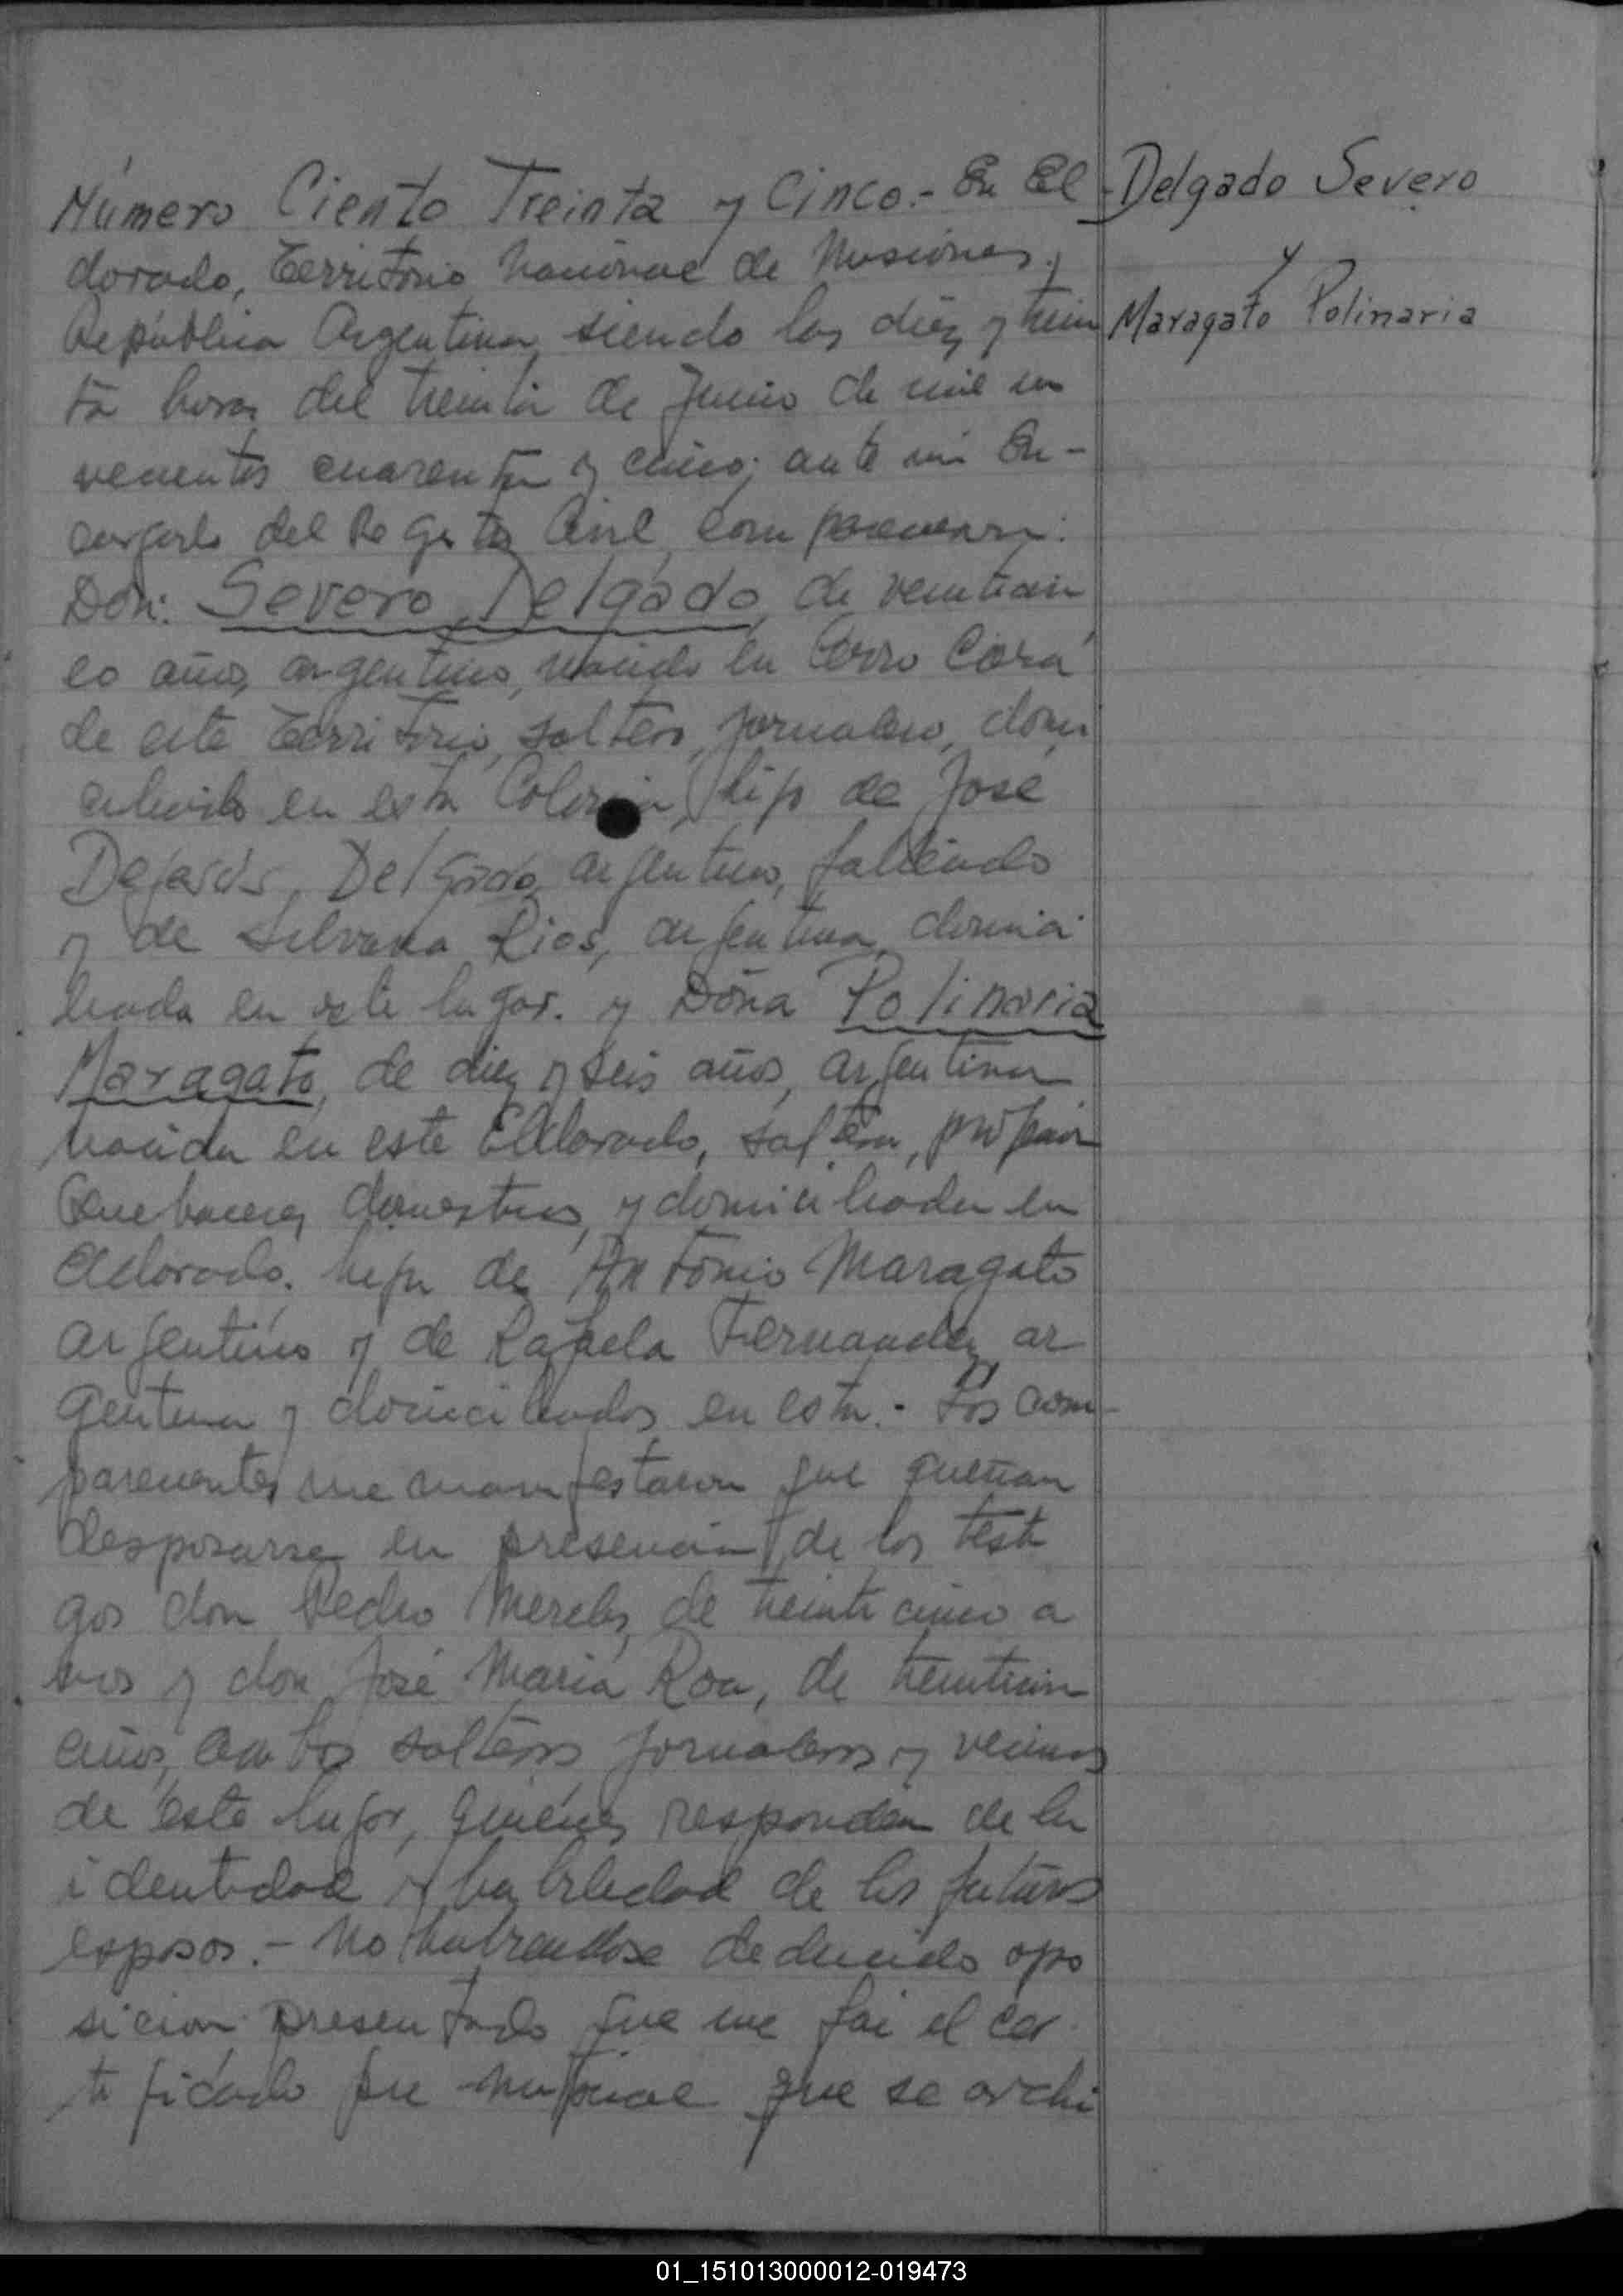 Número Ciento Treinta y Cinco.- En El
dorado, Territorio Nacional de Misiones,
República Argentina, siendo las diez y trein
ta horas del treinta de Junio de mil no
vecientos cuarenta y cinco; ante mi En-
cargado del Registro Civil, comparecieron:
Don: Severo Delgado, de
co años, argentino, nacido en Cerro Corá
de este Territorio, soltero, jornalero, domi
ciliado en esta Colonia, hijo de José
Delgado, argentino, fallecido
y de Silvana Rios, argentina, domici
liada en este lugar. y Doña Polinaria
Maragato, de diez y seis años, argentina
nacida en este Eldorado, soltera, profesión
Quehaceres domesticos, y domiciliada en
Eldorado. hija de Antonio Maragato
argentino y de Rafaela Fernandez ar
gentina y domiciliados en esta.- Los com-
parecientes me manifestaron que querian
desposarse en presencia de los testi
gos don Pedro Mereles, de treinta cinco a
ños y don José María Roa, de
años, ambos solteros jornaleros y vecinos
de este lugar, quiénes responden de la
identidad y habilidad de los futuros
esposos.- No habiendose deducido opo
sicion presentado que me fué el cer
tificado pre nupcial que se archi
Delgado Severo
y
Maragato Polinaria
01_151013000012-019473